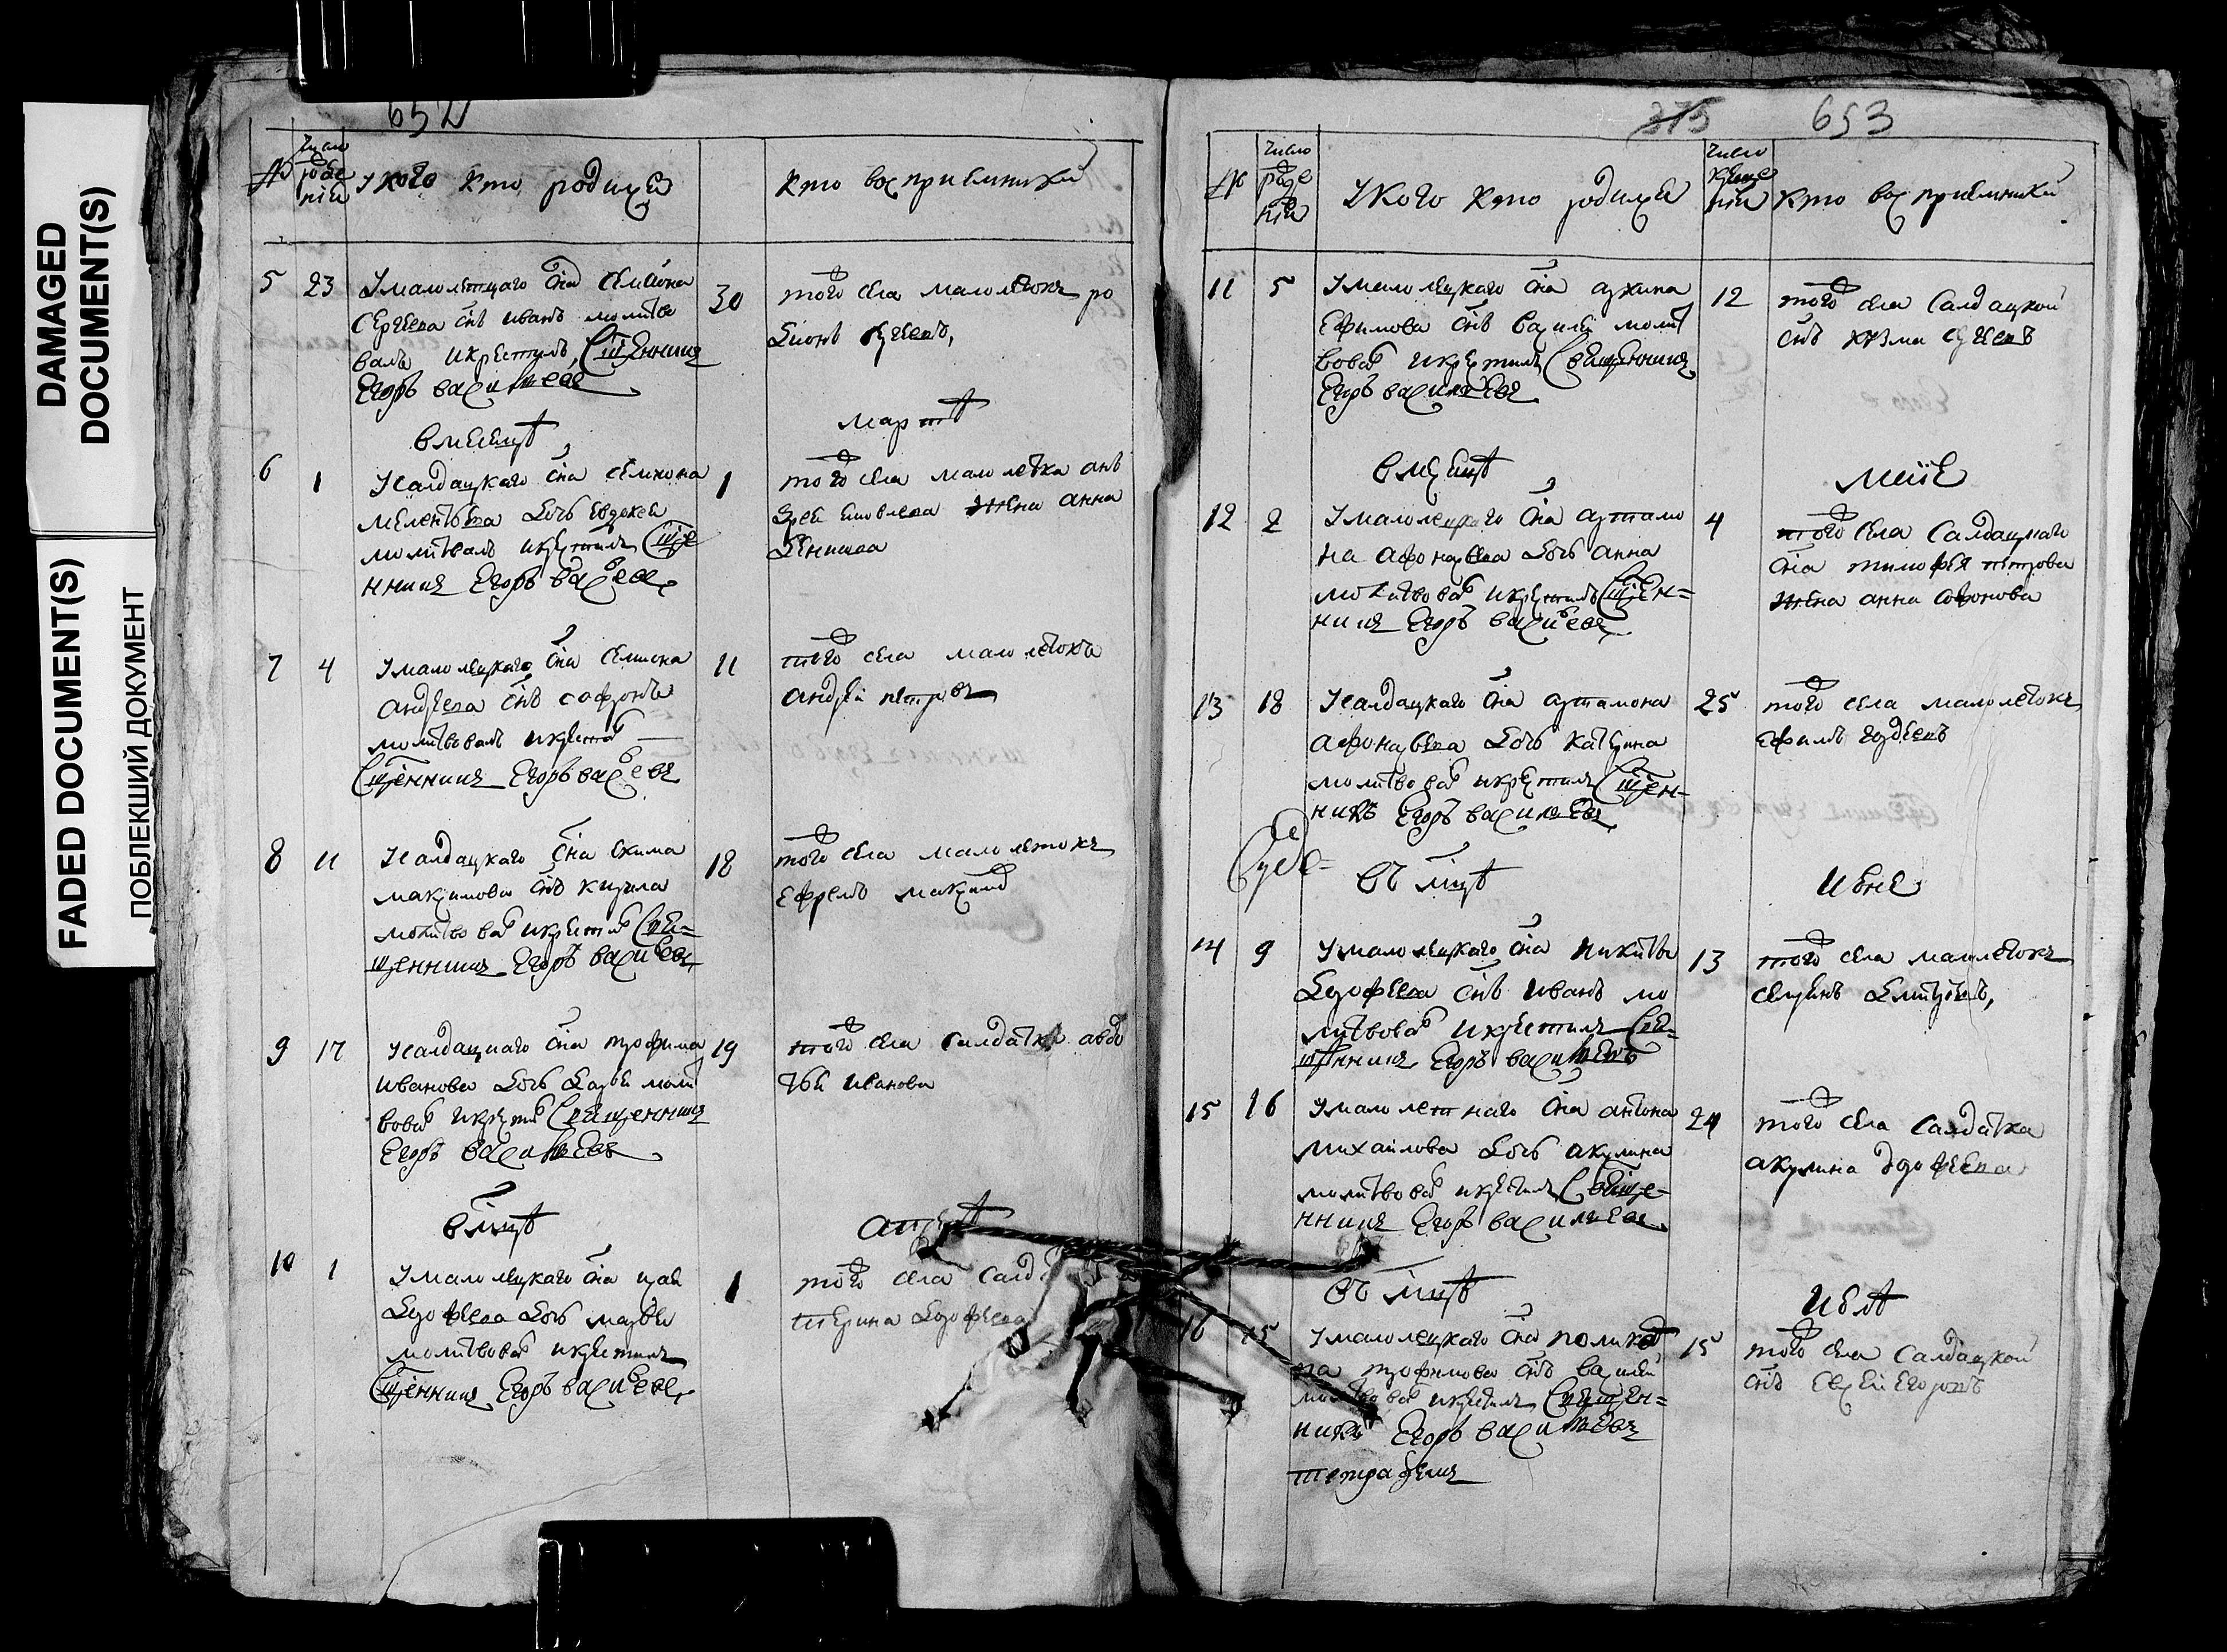 DAMAGED
DOCUMENT(S)
FADED DOCUMENT(S)
ПОБЛЕКШИЙ ДОКУМЕНТ
652
№
число
рожде
нiи
У кого кто родился
кто восприемники
5 23 У малолетцаго сна Симиона
Сергеева снъ иванъ молитво
валъ и крестилъ Сщенникъ
Егоръ василевъ
30 того села малолетокъ ро
дионъ
в месецѣ
мартѣ
6 1 У салдацкаго сна Симиона
мелентьева дочь евдокея
молитвалъ и крестилъ Сще
нникъ Егоръ васевъ
1 того села малолетка анъ
дрея яковлева жена анна
денисова
7 4 У малолецкаго сна Симиона
андреева снъ софронъ
молитвовалъ и крестилъ
Сщенникъ Егоръ васевъ
11 того села малолетокъ
андрей петровъ
8 11 У салдацкаго сна екима
максимова снъ кирила
молитвовалъ и крестилъ Свя-
щенникъ Егоръ васивевъ
18 того села малолетокъ
ефремъ максимовъ
9 17 У салдацкаго сна трофима
иванова дочь дарья моли
вовалъ и крестилъ Священникъ
Егоръ василевъ
19 того села салдатка авдо
тья иванова
в мцѣ
10 1 У малолецкаго сна исая
дорофеева дочь марфа
молитвовалъ и крестилъ
Сщенникъ Егоръ васивев
1 того села салд
терина дорофеева
375 653
№
число
рожде
нiи
У кого кто родился
число
креще
нiи
кто восприемники
11 5 У малолецкаго сна архипа
Ефимова снъ василей молит
вовалъ и крестилъ Священникъ
Егоръ василевъ
12 того села Салдацкой
снъ кузма сергеевъ
в месецѣ
маiе
12 2 У малолецкаго сна артамо
на афонасьева дочь анна
молитвовалъ и крестилъ Сщен-
никъ Егоръ васивевъ
4 того села Салдацкаго
сна тимофея петрова
жена анна софонова
13 18 У салдацкаго сна артамона
афонасьева дочь катерина
молитвовалъ и крестилъ Сщен-
никъ Егоръ василевъ
25 того села малолетокъ
ефимъ гордеевъ
въ мцѣ
июне
14 9 У малолецкаго сна никиты
дорофеева снъ иванъ мо
литвовалъ и крестилъ Свя-
щенникъ Егоръ василевъ
13 того села малолетокъ
дмитреевъ
15 16 У малолетнаго сна антона
михаилова дочь акулина
молитвовалъ и крестилъ Свяще-
нникъ Егоръ василевъ
24 того села салдатка
акулина дорофеева
въ мцѣ
июлѣ
16 15 У малолецкаго сна поликар
па трофимова снъ василей
молитвовалъ и крестилъ Священ-
никъ Егоръ василевъ
15 того села салдацкой
снъ Сергей Егоровъ